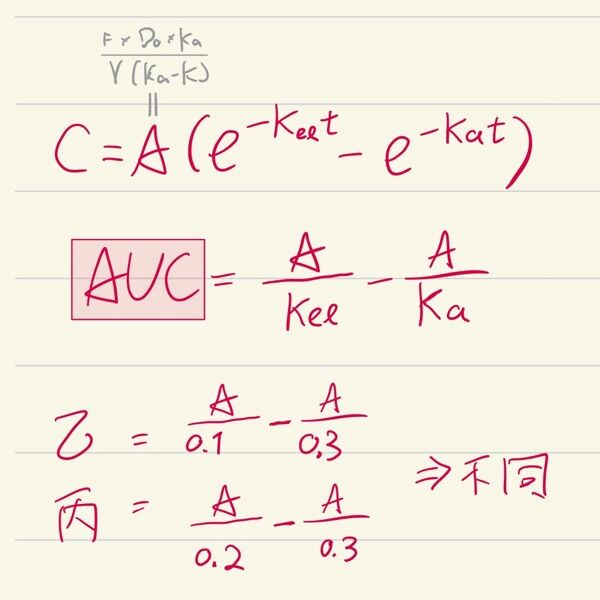 F × D₀ × Ka
V (Ka-K)
=
C = A (e^-Keet - e^-Kat)
AUC = A/Kee - A/Ka
乙 = A/0.1 - A/0.3
⇒ 不同
丙 = A/0.2 - A/0.3